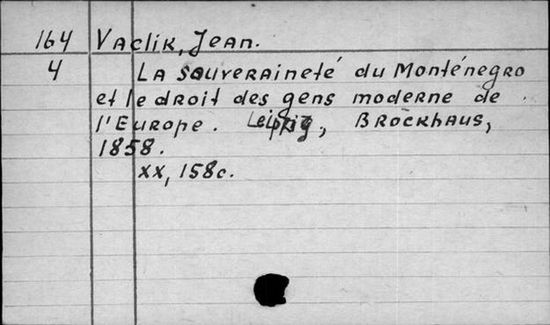 164 Vaclik, Jean.
4 La souveraineté du Monténegro
et le droit des gens moderne de
l'Europe. Leipzig, Brockhaus,
1858.
xx, 158c.